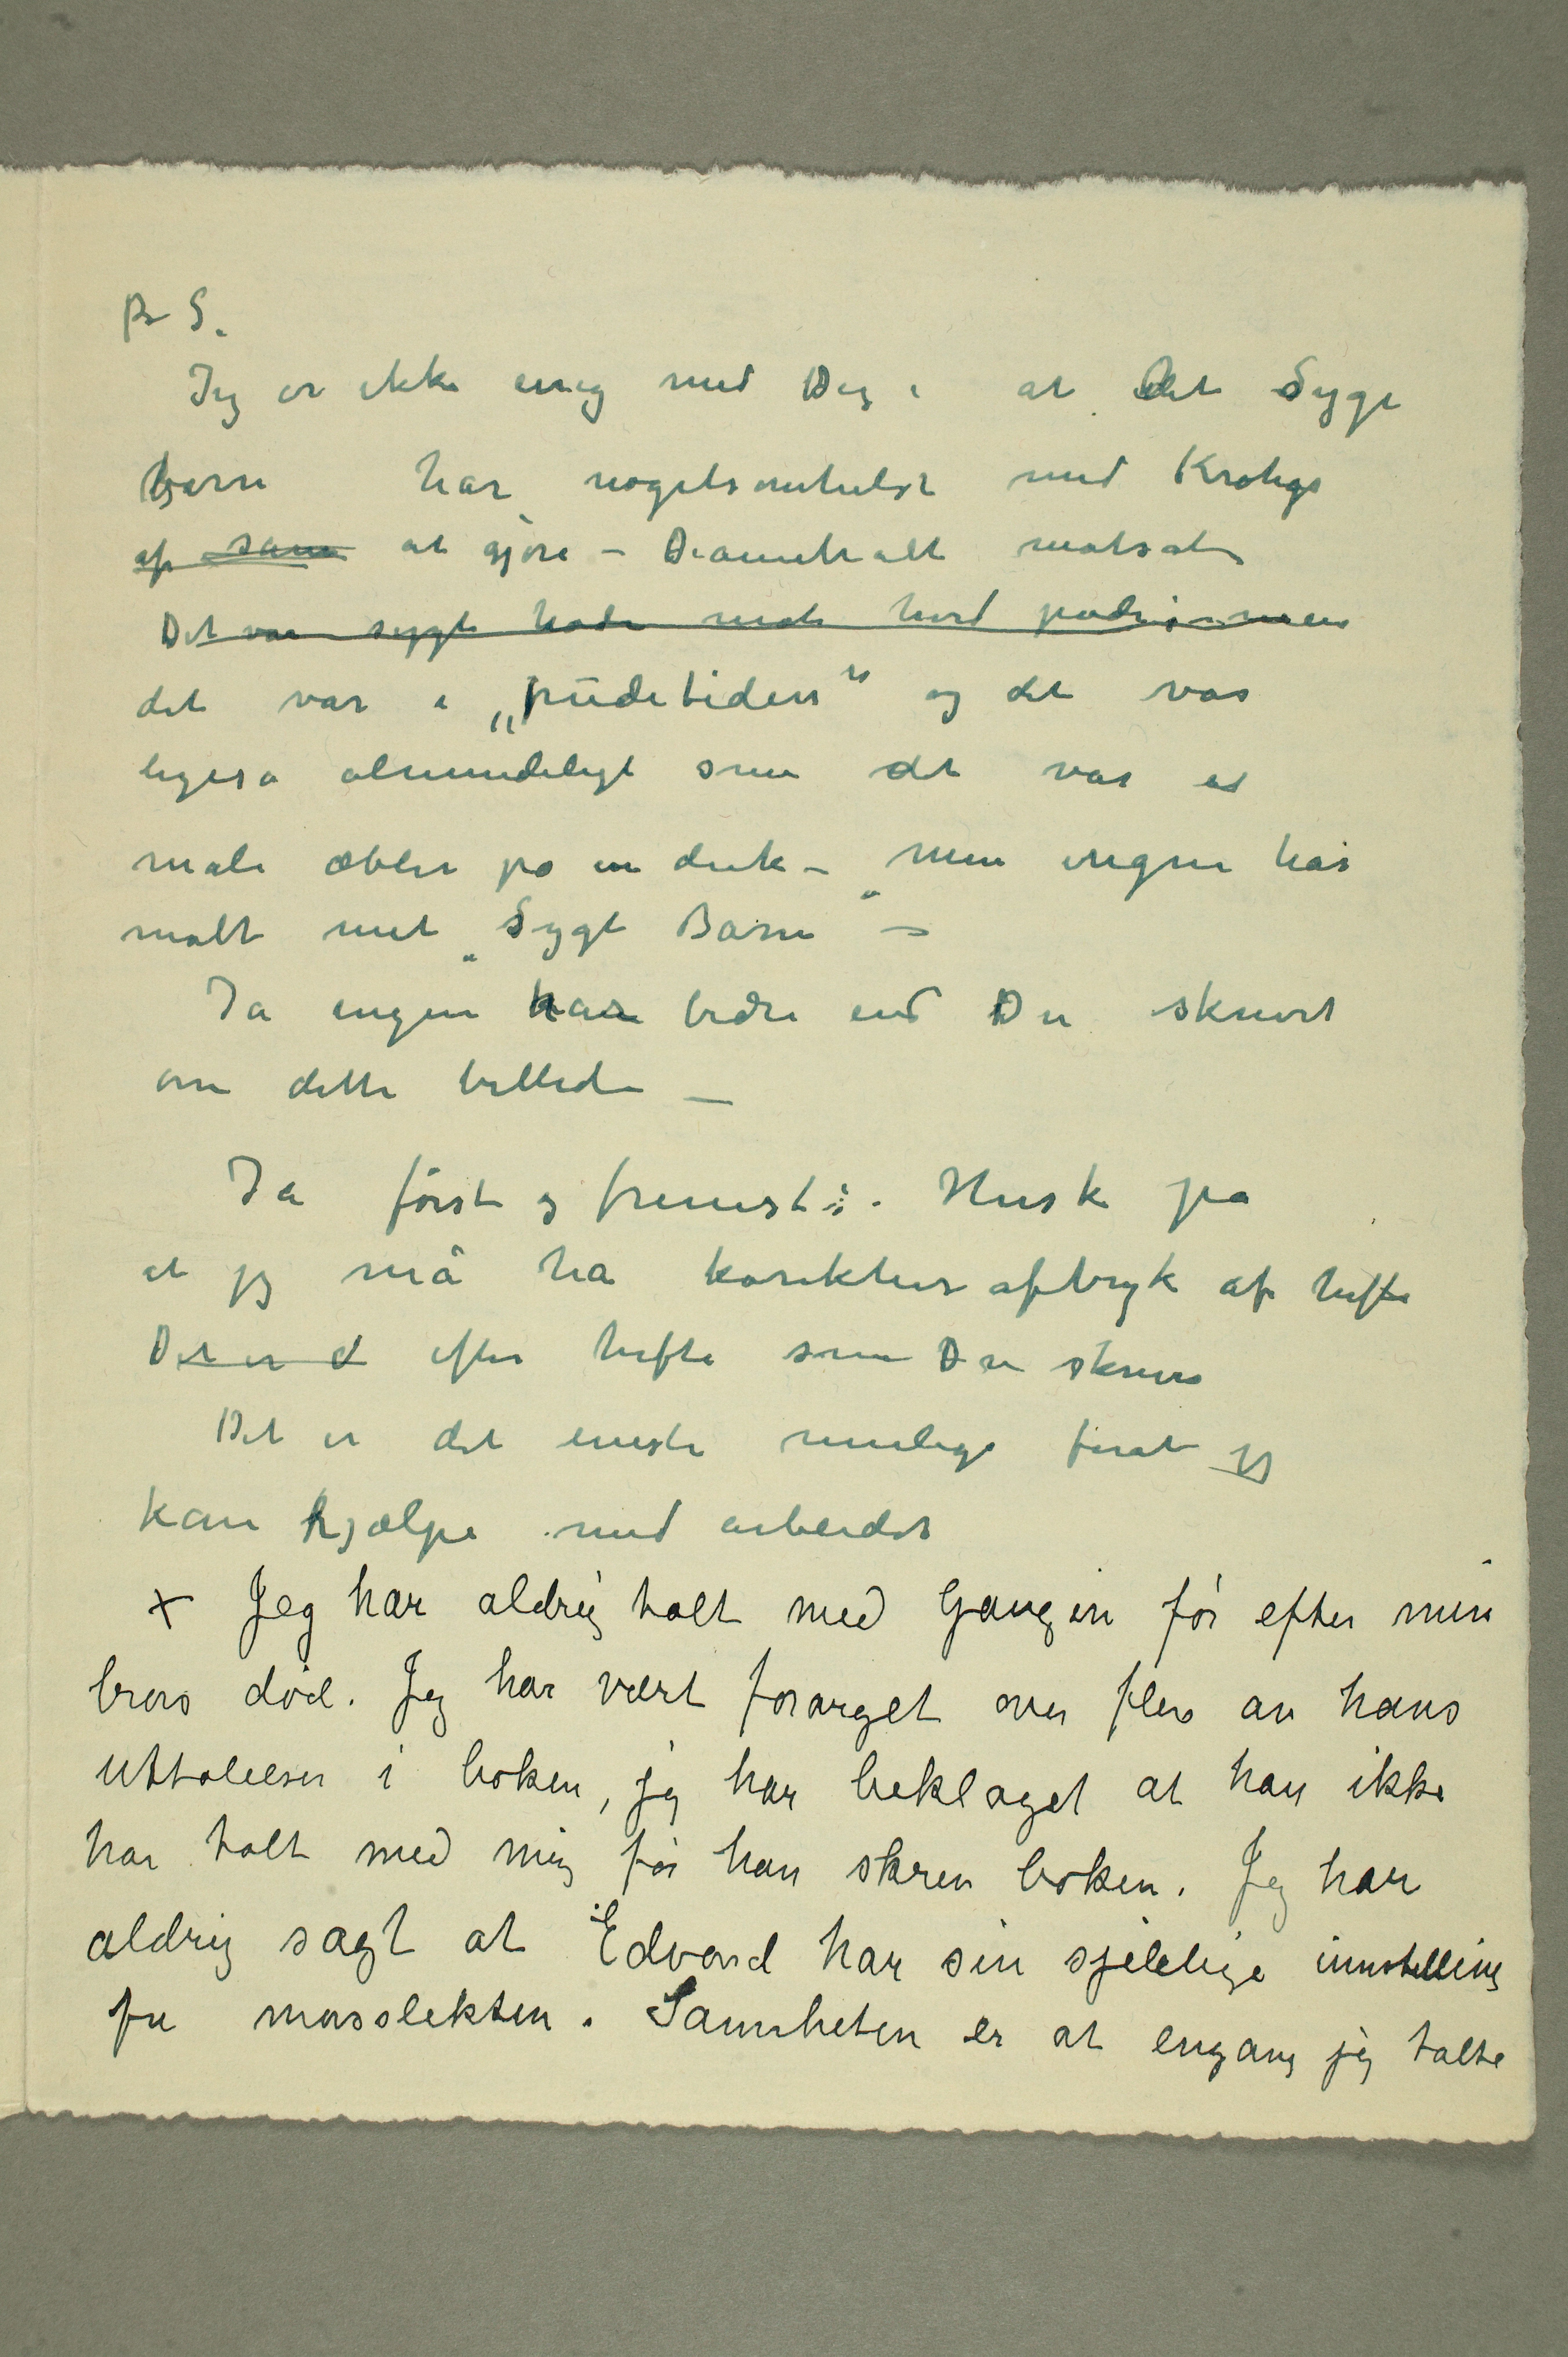 PS.
Jeg er ikke enig med Dig i at det Syge
barn har nogetsomhelst med Krohgs
af samme at gjøre – Diamehtralt motsat
Det var sygt hode mot hvid pude; men
det var i „pudetiden“ og det var
ligeså almindeligt som det var at
male æbler på en duk – men ingen har
malt mit „Sygt Barn“ –
Ja ingen har bedre end Du skrevet
om dette billede –
Ja først og fremst: Husk på
at jeg må ha korekturaftryk af hefte
Det er d efter hefte som Du skriver
Det er det eneste mulige forat jeg
kan hjælpe med arbeidet
× Jeg har aldrig talt med Gaugin før efter min
brors död. Jeg har vært forarget over flere av hans
uttalelser i boken, jeg har beklaget at han ikke
har talt med mig før han skrev boken. Jeg har
aldrig sagt at Edvard har sin sjelelige innstilling
fra morsslekten. Sannheten er at engang jeg talte